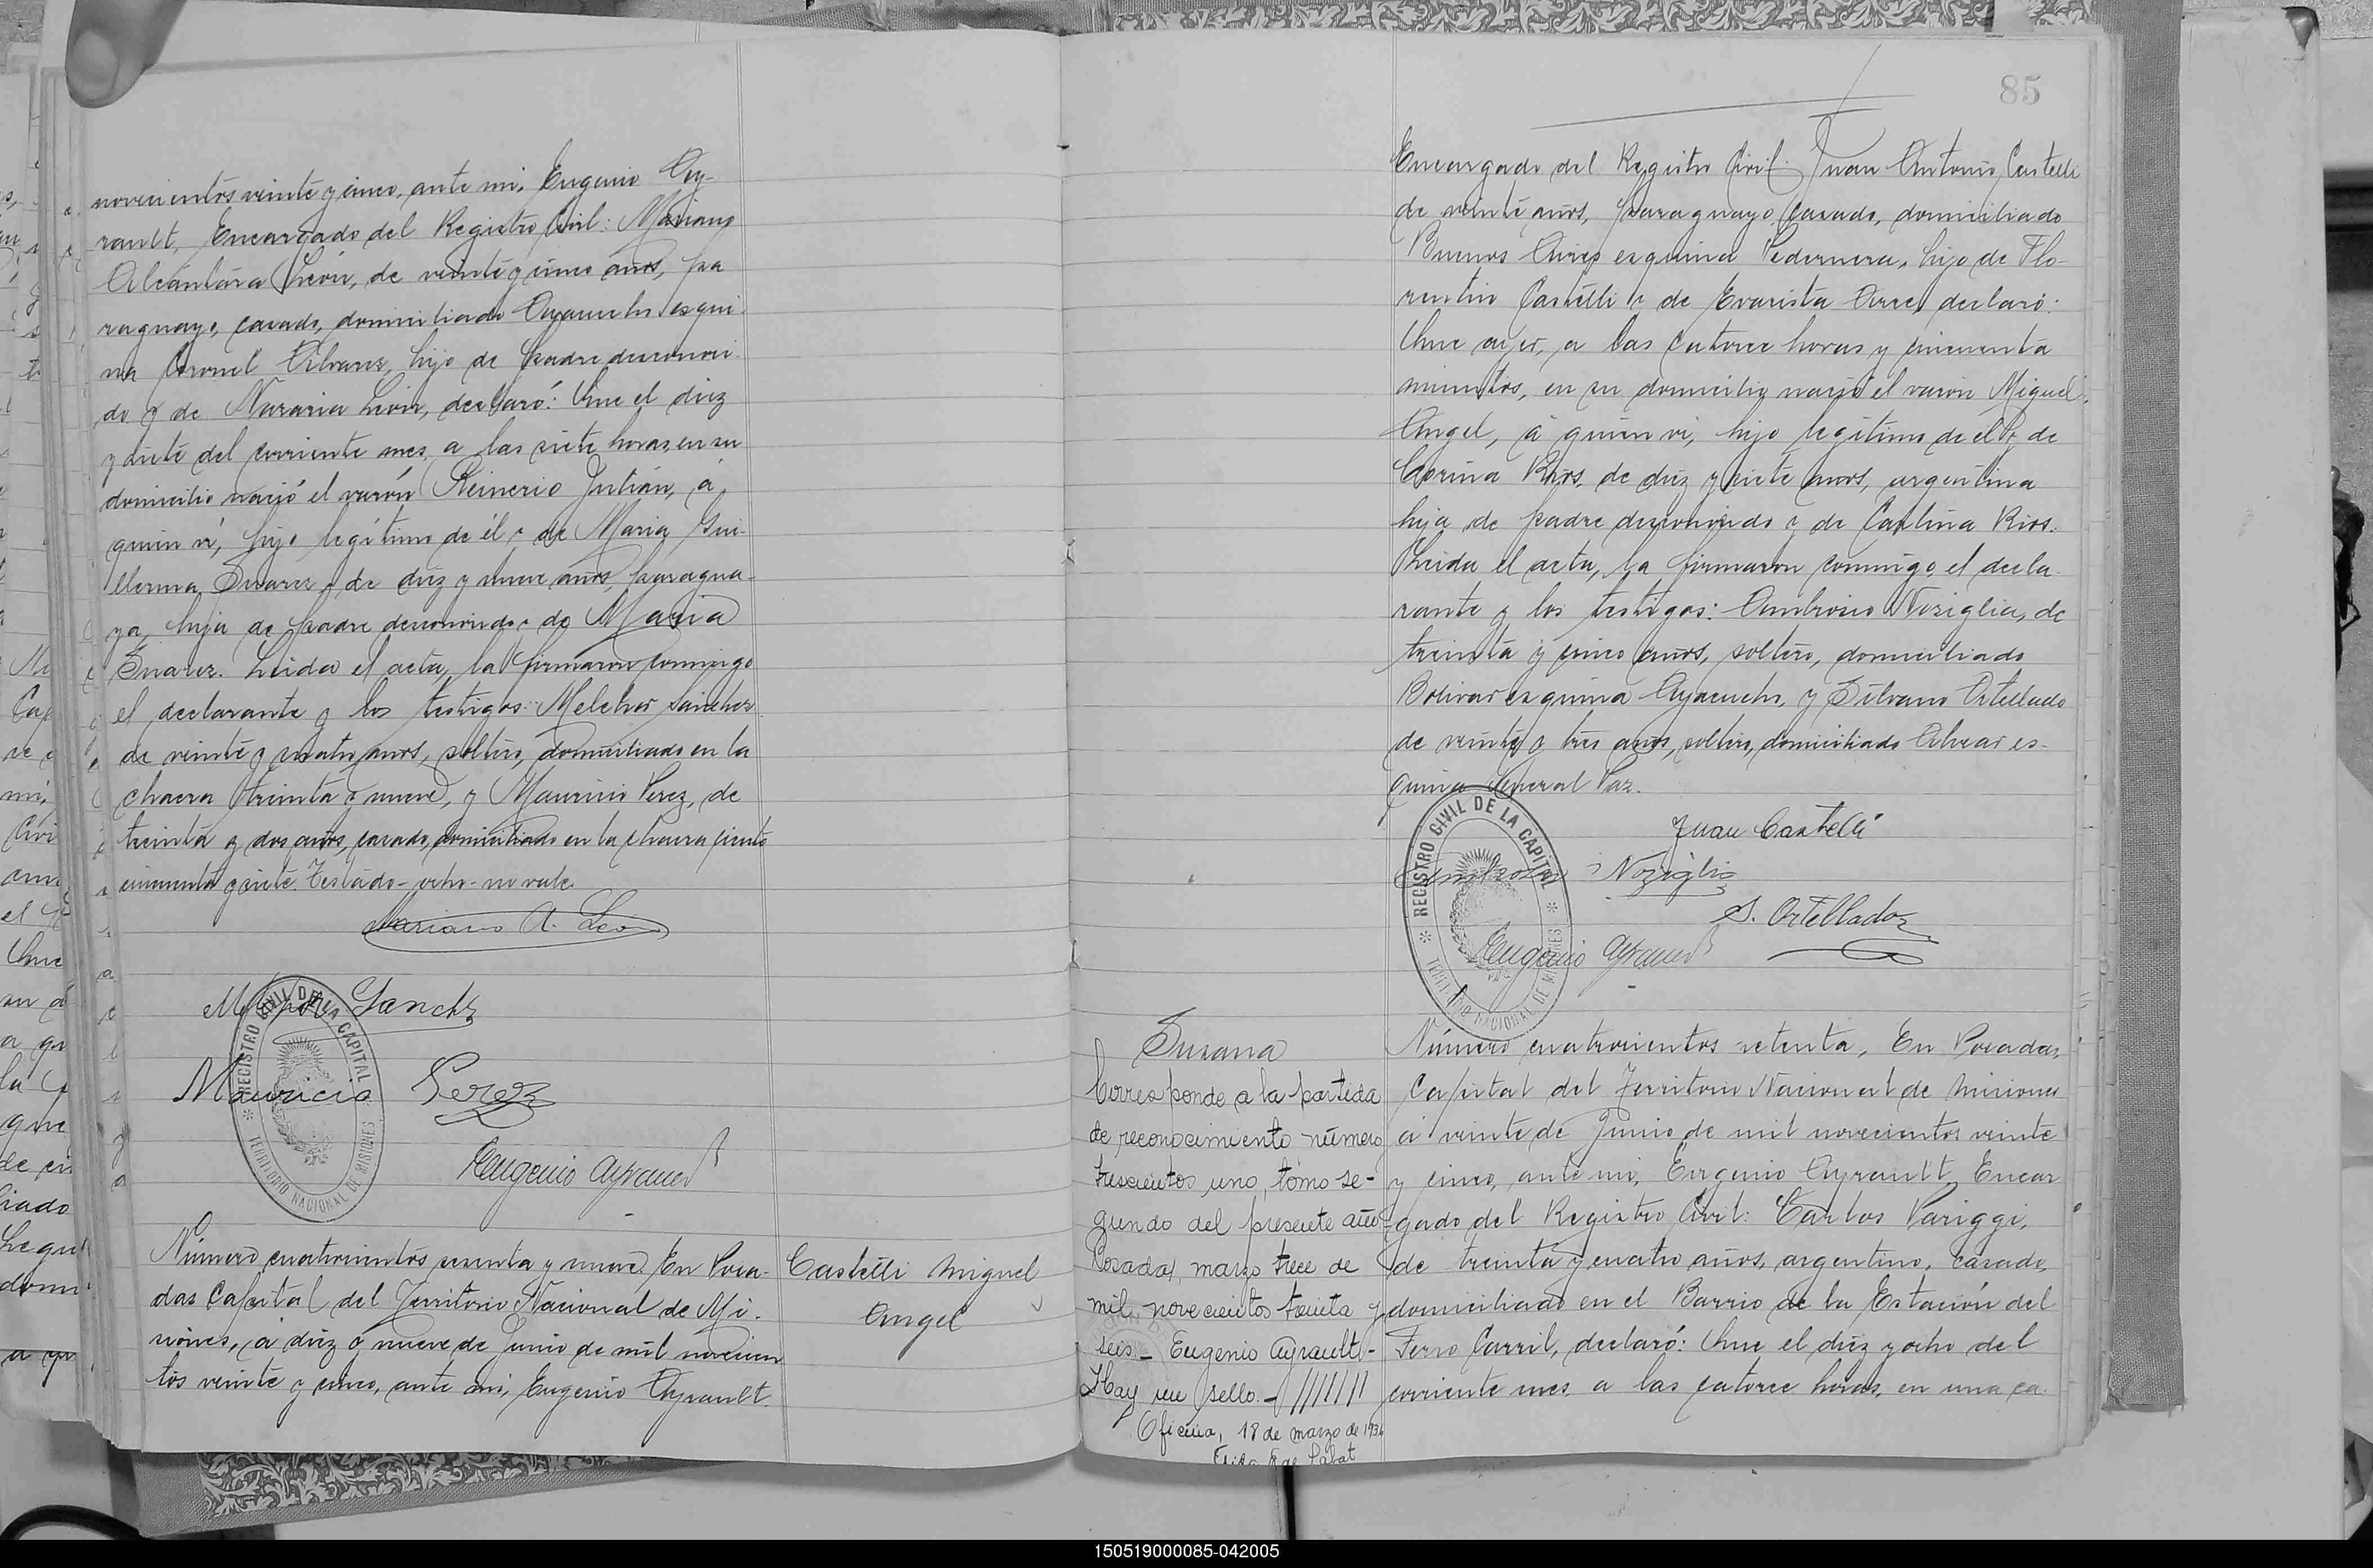 novecientos veinte y cinco, ante mi, Eugenio Ay-
rault, Encargado del Registro Civil: Mariano
Alcántara León, de veinte y cinco años, pa
raguayo, casado, domiciliado Ayacucho esqui
na Coronel Alvarez, hijo de padre desconoci
do y de Nazaria León, declaró: Que el diez
y siete del corriente mes, a las siete horas, en su
domicilio nació el varón Reinerio Julián, á
quien ví, hijo legítimo de él y de Maria Gui-
llerma Suarez, de diez y nueve años, paragua-
ya, hija de padre desconocido y de Maria
Suarez. Leida el acta, la firmaron conmigo
el declarante y los testigos: Melchor Sanchez
de veinte y cuatro años, soltero, domiciliado en la
chacra treinta y nueve, y Mauricio Perez, de
treinta y dos años, casado, domiciliado en la chacra ciento
cincuenta y siete. Testado - ocho - no vale.
Mariano A. León
Melchor Sanchz
Mauricio Perez
Eugenio Ayrault
REGISTRO CIVIL DE LA CAPITAL
TERRITORIO NACIONAL DE MISIONES
Castelli Miguel
Angel
Número cuatrocientos sesenta y nueve. En Posa-
das Capital del Territorio Nacional de Mi-
siones, á diez y nueve de Junio de mil novecien
tos veinte y cinco, ante mi, Eugenio Ayrault
85
Encargado del Registro Civil: Juan Antonio Castelli
de veinte años, paraguayo, casado, domiciliado
Buenos Aires esquina Pedernera, hijo de Flo-
rentin Castelli y de Evarista declaró:
Que ayer, a las catorce horas y cincuenta
minutos, en su domicilio nació el varón Miguel
Angel, á quien ví, hijo legítimo de él y de
Corina Rios, de diez y siete años, argentina
hija de padre desconocido y de Catalina Rios.
Leida el acta, la firmaron conmigo, el decla
rante y los testigos: Ambrosio Noziglia, de
treinta y cinco años, soltero, domiciliado
Bolivar esquina Ayacucho, y Silvano Ortellado
de veinte y tres años, soltero, domiciliado Alvear es-
quina General Paz.
Juan Castelli
Ambrosio Noziglia
S. Ortellado
Eugenio Ayrault
REGISTRO CIVIL DE LA CAPITAL
TERRITORIO NACIONAL DE MISIONES
Susana
Corresponde a la partida
de reconocimiento número
trescientos uno, tomo se-
gundo del presente año
Posadas, marzo trece de
mil novecientos treinta y
seis - Eugenio Ayrault -
Hay un sello. - ///////
Oficina, 18 de marzo de 1936
Número cuatrocientos setenta. En Posadas,
Capital del Territorio Nacional de Misiones
á veinte de Junio de mil novecientos veinte
y cinco, ante mi, Eugenio Ayrault, Encar
gado del Registro Civil: Carlos Pariggi,
de treinta y cuatro años, argentino, casado,
domiciliado en el Barrio de la Estación del
Ferro Carril, declaró: Que el diez y ocho del
corriente mes a las catorce horas, en una ca-
150519000085-042005